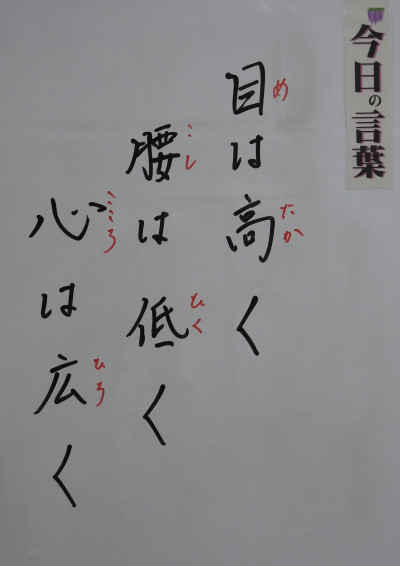 今日の言葉
目は高く
めたか
腰は低く
こしひく
心は広く
こころひろ